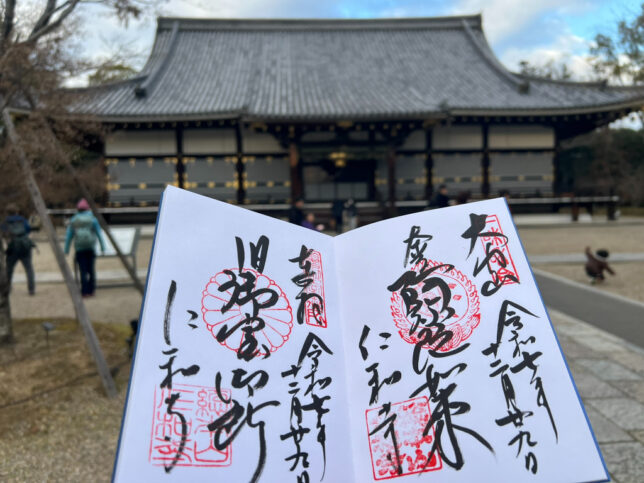 大内山
令和七年
十二月廿九日
阿弥陀如来
仁和寺
令和七年
十二月廿九日
旧御室御所
仁和寺